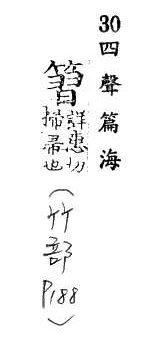 30四聲篇海
詳惠切
掃帚也
(竹部P188)